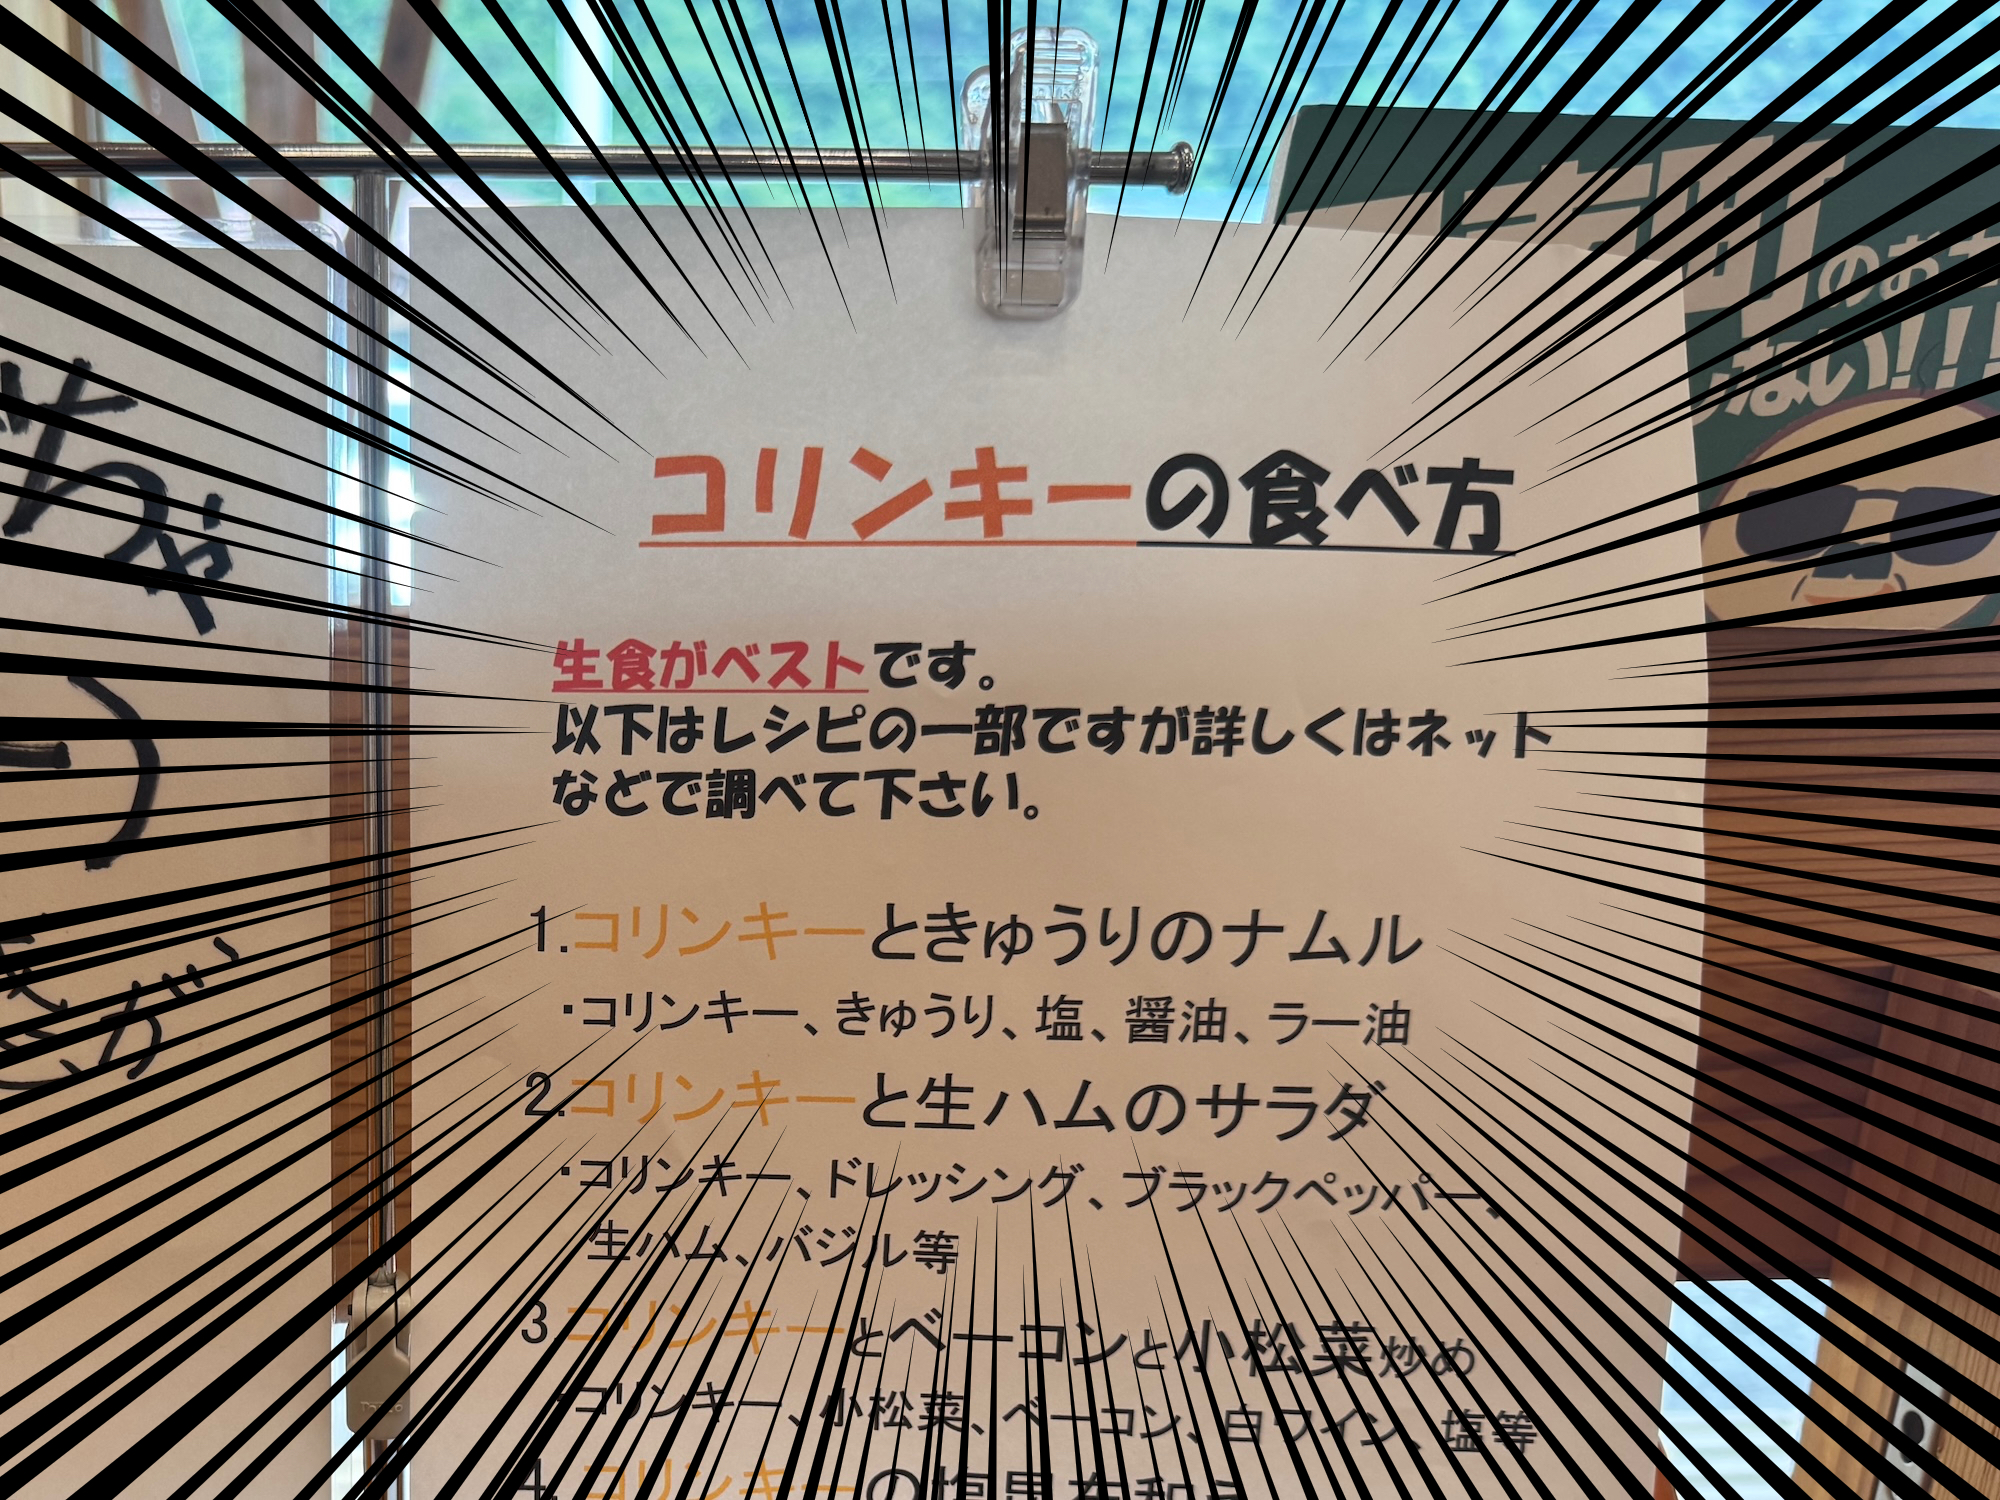 コリンキーの食べ方
生食がベストです。
以下はレシピの一部ですが詳しくはネット
などで調べて下さい。
1.コリンキーときゅうりのナムル
・コリンキー、きゅうり、塩、醤油、ラー油
2.コリンキーと生ハムのサラダ
・コリンキー、ドレッシング、ブラックペッパー、
生ハム、バジル等
3 コリンキーとベーコンと小松菜炒め
・コリンキー、小松菜、ベーコン、白ワイン、塩等
4.コリンキーの塩昆布和え
のお
ない!!!